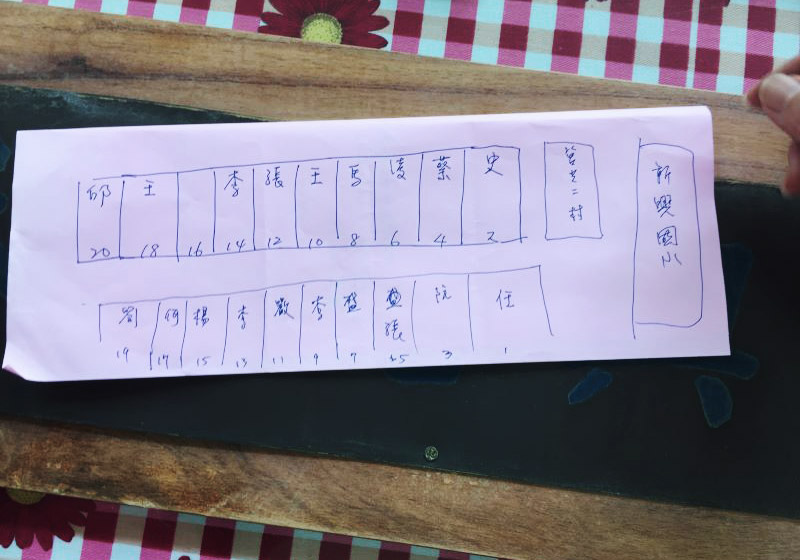 邱 王 李 張 王 馬 凌 蔡 史
20 18 16 14 12 10 8 6 4 2
劉 何 楊 李 嚴 李 張 阮 任
19 17 15 13 11 9 7 5 3 1
二村
新興國小